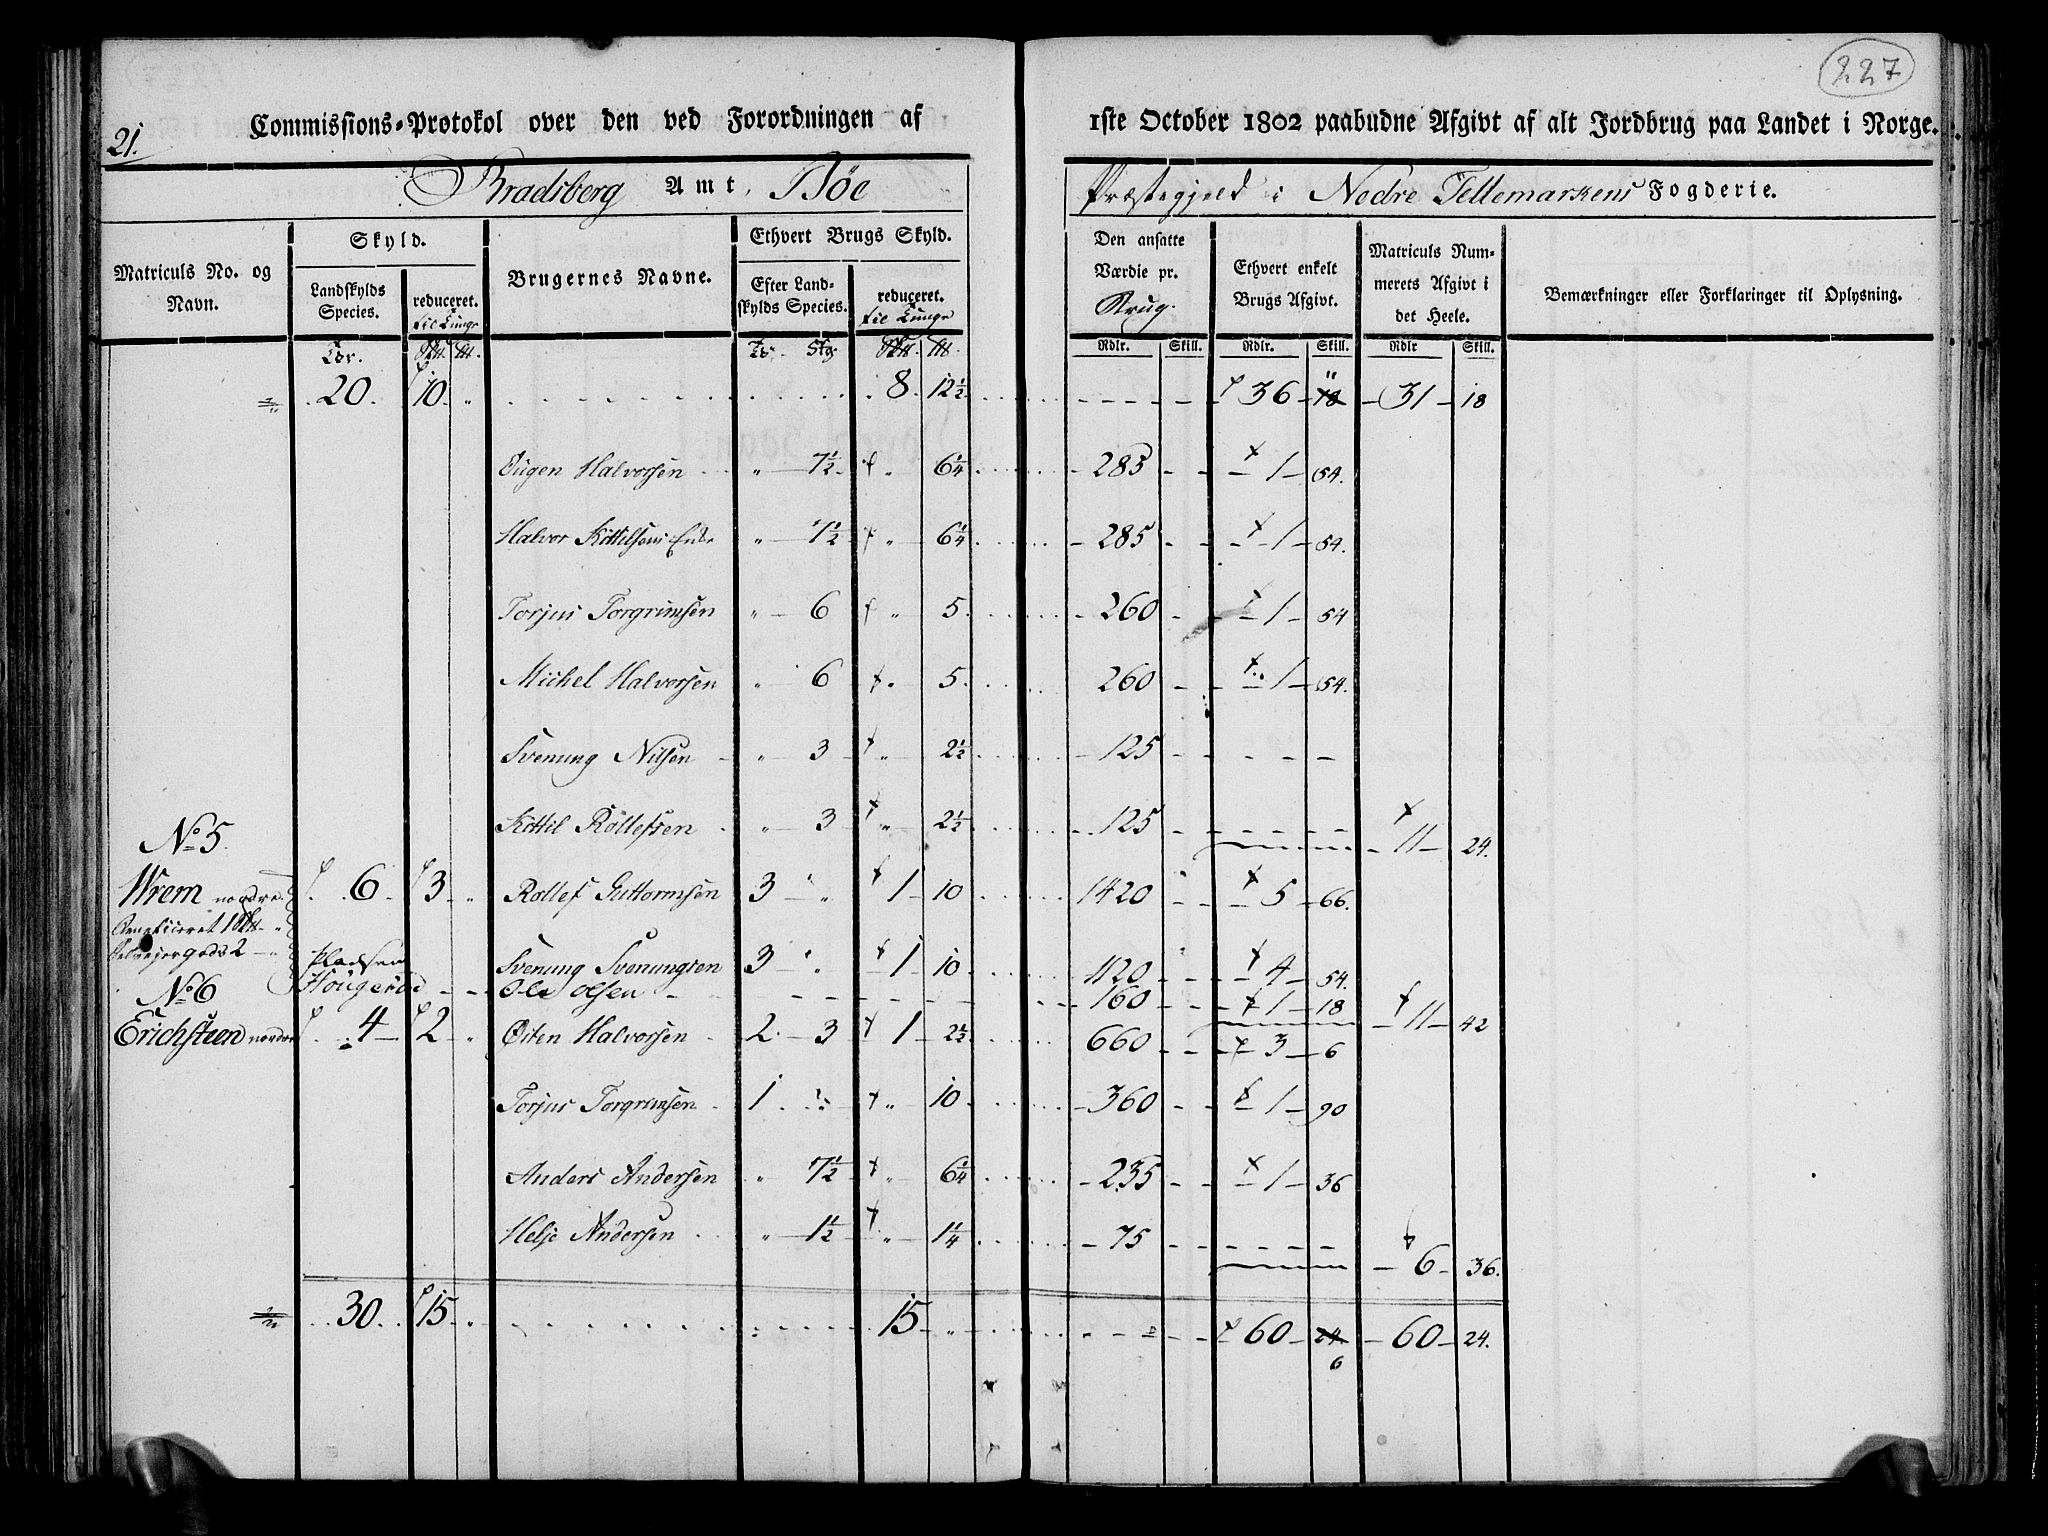 227
21.
Commissions-Protokol over den ved Forordningen af 1ste October 1802 paabudne Afgivt af alt Jordbrug paa Landet i Norge.
Bradsberg Amt, Bøe Præstegjeld i Nedre Tellemarkens Fogderie.
Matriculs No. og Navn. Skyld. Brugernes Navne. Ethvert Brugs Skyld. Den ansatte Værdie pr. Brug. Ethvert enkelt Brugs Afgivt. Matriculs Nummerets Afgivt i det Heele. Bemærkninger eller Forklaringer til Oplysning.
Landskylds Species. reduceret. til Tunge Efter Landskylds Species. reduceret. til Tunge
Rdlr. Skill. Rdlr. Skill. Rdlr Skill.
20. 10. " 8. 12½ 36 " 18 31 18
Øugen Halvorssen " 7½ " 6¼ 285 1 54.
Halvor Kittilsens Enke " 7½ " 6¼ 285 1 54.
Torjus Torgrimsen " 6 " 5. 260 1 54
Michel Halvorsen " 6 " 5. 260 1 54.
Svenung Nilsen " 3 " 2½ 125
No 5. Kittil Rollefsen " 3 " 2½ 125 11 24.
Wrem nordre 6. 3 " Rollef Guttormsen 3 " 1 10 1420 5 66.
Beneficeret 1
Selvejergods 2
Svenung Svenungsen 3 " 1 10 1120 4 54.
No 6 Pladsen Hougerød Ole Olsen 160 1 18 11 42
Erichsteen nordre 4 2 " Østen Halvorsen 2 3 1 2½ 660 3 6
Torjus Torgrimsen 1 " " 10 360 1 90
Anders Andersen " 7½ " 6¼ 235 1 36
Helje Andersen " 1½ " 1¼ 75 6 36.
30. 15 " 15 " 60 24 60 24.
6